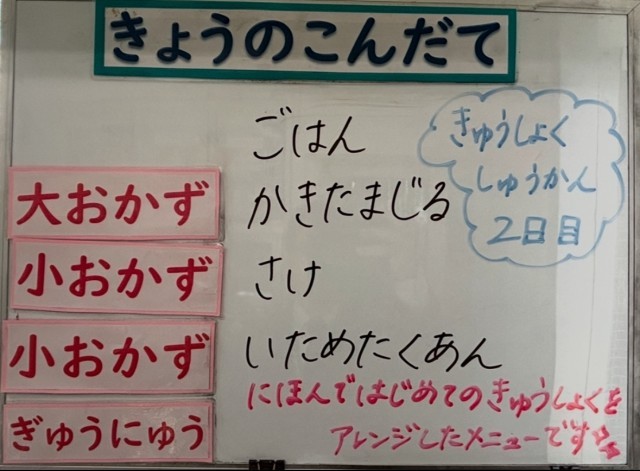 きょうのこんだて
ごはん
きゅうしょく
しゅうかん
2日目
大おかず かきたまじる
小おかず さけ
小おかず いためたくあん
ぎゅうにゅう
にほんではじめてのきゅうしょくを
アレンジしたメニューです